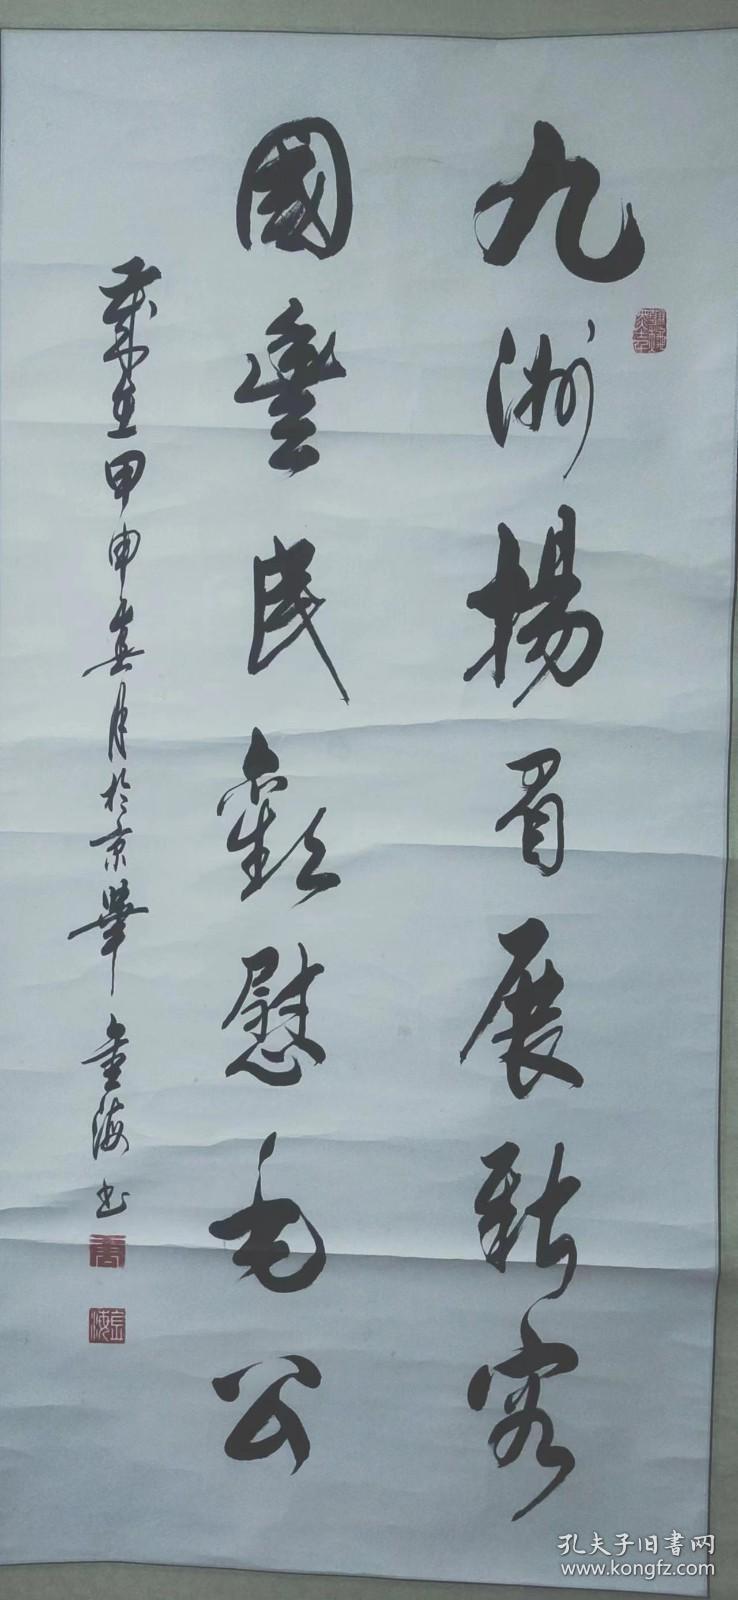 九洲揚眉展新容
國豐民歡慰毛公
歲在甲申春月於京華 金海書
孔夫子旧书网
www.kongfz.com